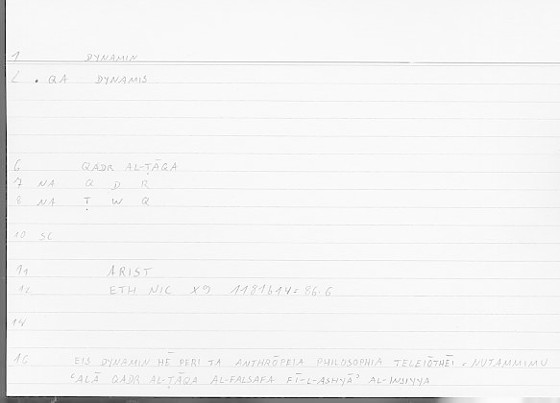 1 DYNAMIN
2 • QA DYNAMIS
6 QADR AL-ṬĀQA
7 NA Q D R
8 NA Ṭ W Q
10 SC
11 ARIST
12 ETH NIC X9 1181b14 = 86.6
14
16 EIS DYNAMIN HĒ PERI TA ANTHRŌPEIA PHILOSOPHIA TELEIŌTHĒI = NUTAMMIMU
ʿALĀ QADR AL-ṬĀQA AL-FALSAFA FĪ-L-ASHYĀʾ AL-INSIYYA